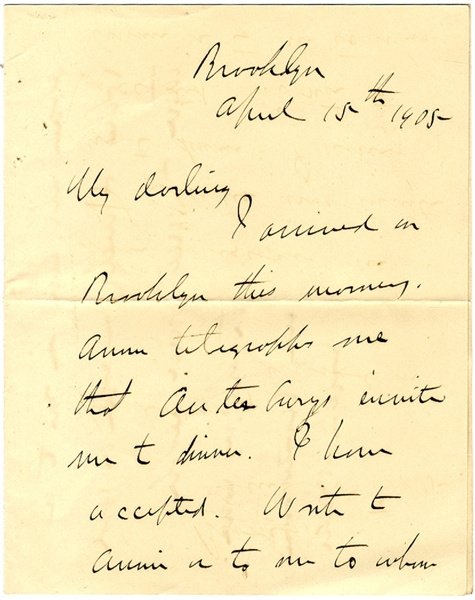 Brooklyn
April 15th 1905
My darling
I arrived in
Brooklyn this morning.
Annie telegraphs me
that invite
me to dinner. I have
accepted. Write to
Annie or to me to whom